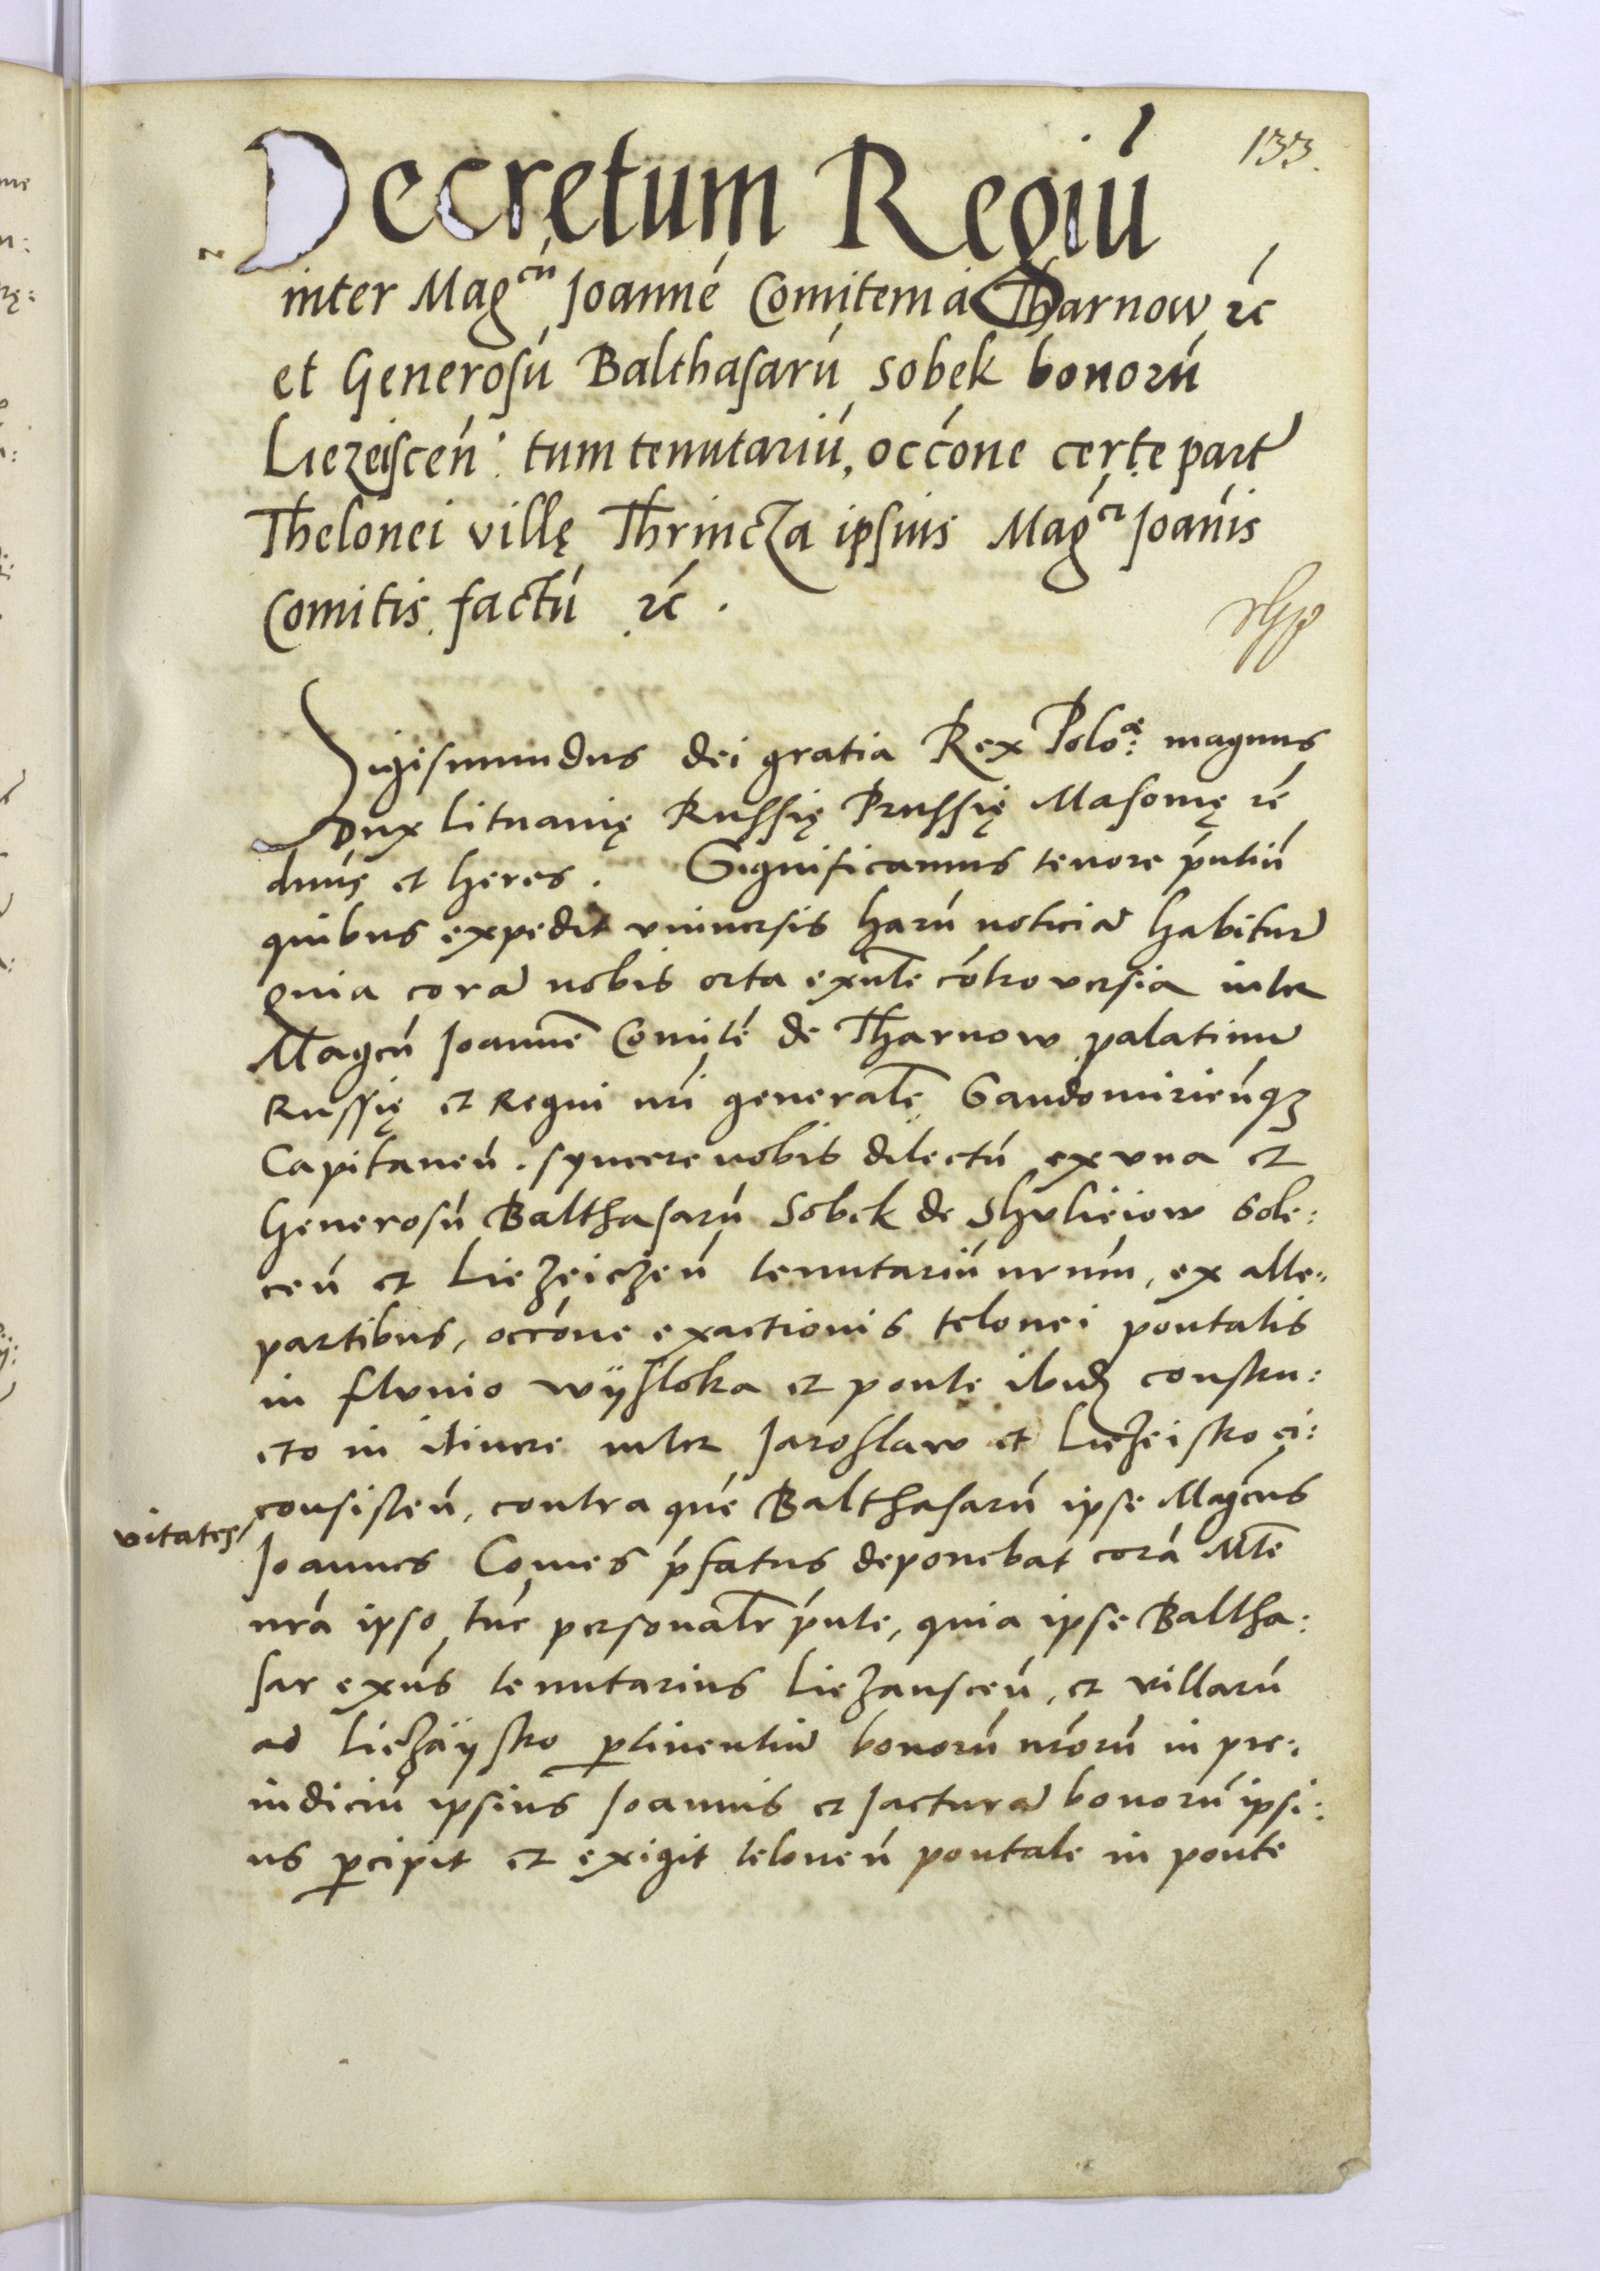 133.
Decretum Regiú
inter Magcú Joanné Comitem á Tharnow ꝛć
et Generosú Balthasarú Sobek bonorú
Liezeiscen̄: tum tenutariú, occóne certe part
Thelonei villę Thrincza ipsius Magci Joánis
Comitis factú ꝛć.
Sigismundus dei gratia Rex Poloę: magnus
Dux Lituanię Russię Prussię Masouię ꝛć
dnús et heres. Significamus tenore pńtiú
quibus expedit vniuersis harú noticiā habiturꝭ
Quia corā nobis orta exńte cótrouersia inter
Magcú Joannē Comité de Tharnow palatinū
Russię et Regni nri generalē Sandomirień́qꝫ
Capitaneú. syncere nobis dilectú ex vna et
Generosú Balthasarú Sobek de Shulieiow Sole:
ceń et Liezeiczeń tenutariú nrúm, ex alte..
partibus, occóne exactionis telonei pontalis
in fluuio wÿsloka et ponte ibidꝫ constru:
cto in itinere inter Jaroslaw et Liezeisko ci:
vitates
consisteń, contra qúe Balthasarú ipse Magćus
Joannes Comes ṕfatus deponebat corá Mte
nrá ipso túc personalr ṕnte, quia ipse Baltha:
sar exńs tenutarius Liezansceń, et villarú
ad Liezaÿsko ꝑtinentiū bonorú nrorú in pre:
iudiciú ipsius Joannis et Jacturā bonorú ipsi:
us ꝑcipit et exigit teloneú pontale in ponte